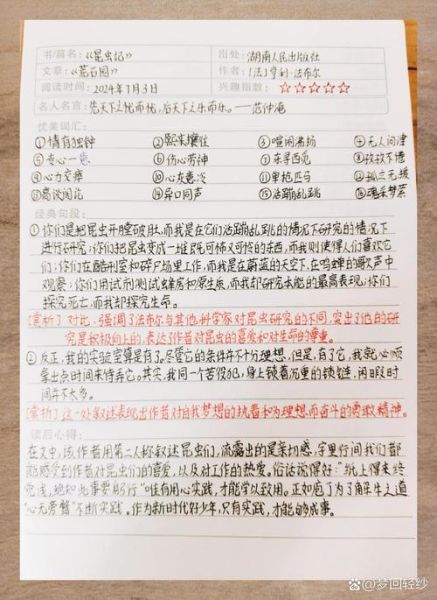 书/篇名：《昆虫记》 出处：湖南人民出版社
文章：《荒石园》 作者：[法]亨利·法布尔
阅读时间：2024年1月3日 兴趣指数：☆☆☆☆☆
名人名言：先天下之忧而忧，后天下之乐而乐。——范仲淹
优美词汇：
①情有独钟 ②熙来攘往 ③喧闹者场 ④无人问津
⑤专心一意 ⑥伤心劳神 ⑦东寻西觅 ⑧孜孜不倦
⑨心力交瘁 ⑩心灰意冷 ⑪单枪匹马 ⑫孤立无援
⑬高谈阔论 ⑭异口同声 ⑮活蹦乱跳 ⑯魂牵梦萦
经典句段：
①你们是把昆虫开膛破肚，而我是在它们活蹦乱跳的情况下研究的情况下
进行研究；你们把昆虫变成一堆既可怖又可怜的东西，而我则使得人们喜欢它
们；你们在酷刑室和碎尸场里工作，而我是在蔚蓝的天空下，在鸣蝉的歌声中
观察；你们用试剂测试蜂房和原生质，而我却研究本能的最高表现；你们
探究死亡，而我却探究生命。
[赏析]对比，强调了法布尔与其他科学家对昆虫研究的不同，突出了他的研
究是积极向上的，表达了作者对昆虫的喜爱和对生命的尊重。
②反正，我的实验室算是有了。尽管它的条件并不十分理想，但是，有了它，我就必须
拿出点时间来侍弄它。其实，我同一个苦役犯，身上锁着沉重的锁链，闲暇时
间并不太多。
[赏析]这一处叙述表现出作者对自我梦想的执着和为理想而奋斗的勇敢精神。
读后心得：
在文中，法作者用第二人称叙述昆虫们，流露出的是亲切感，字里行间我们都
能感受到作者对昆虫们的喜爱，以及对工作的热爱。俗话说得好："纸上得来终
觉浅，绝知此事要躬行"唯有用心实践，才能学以致用。正如庖丁为了解牛之道
"心无旁骛"不断实践。作为新时代好少年，只有实践，才能够成事。
@梦回轻纱